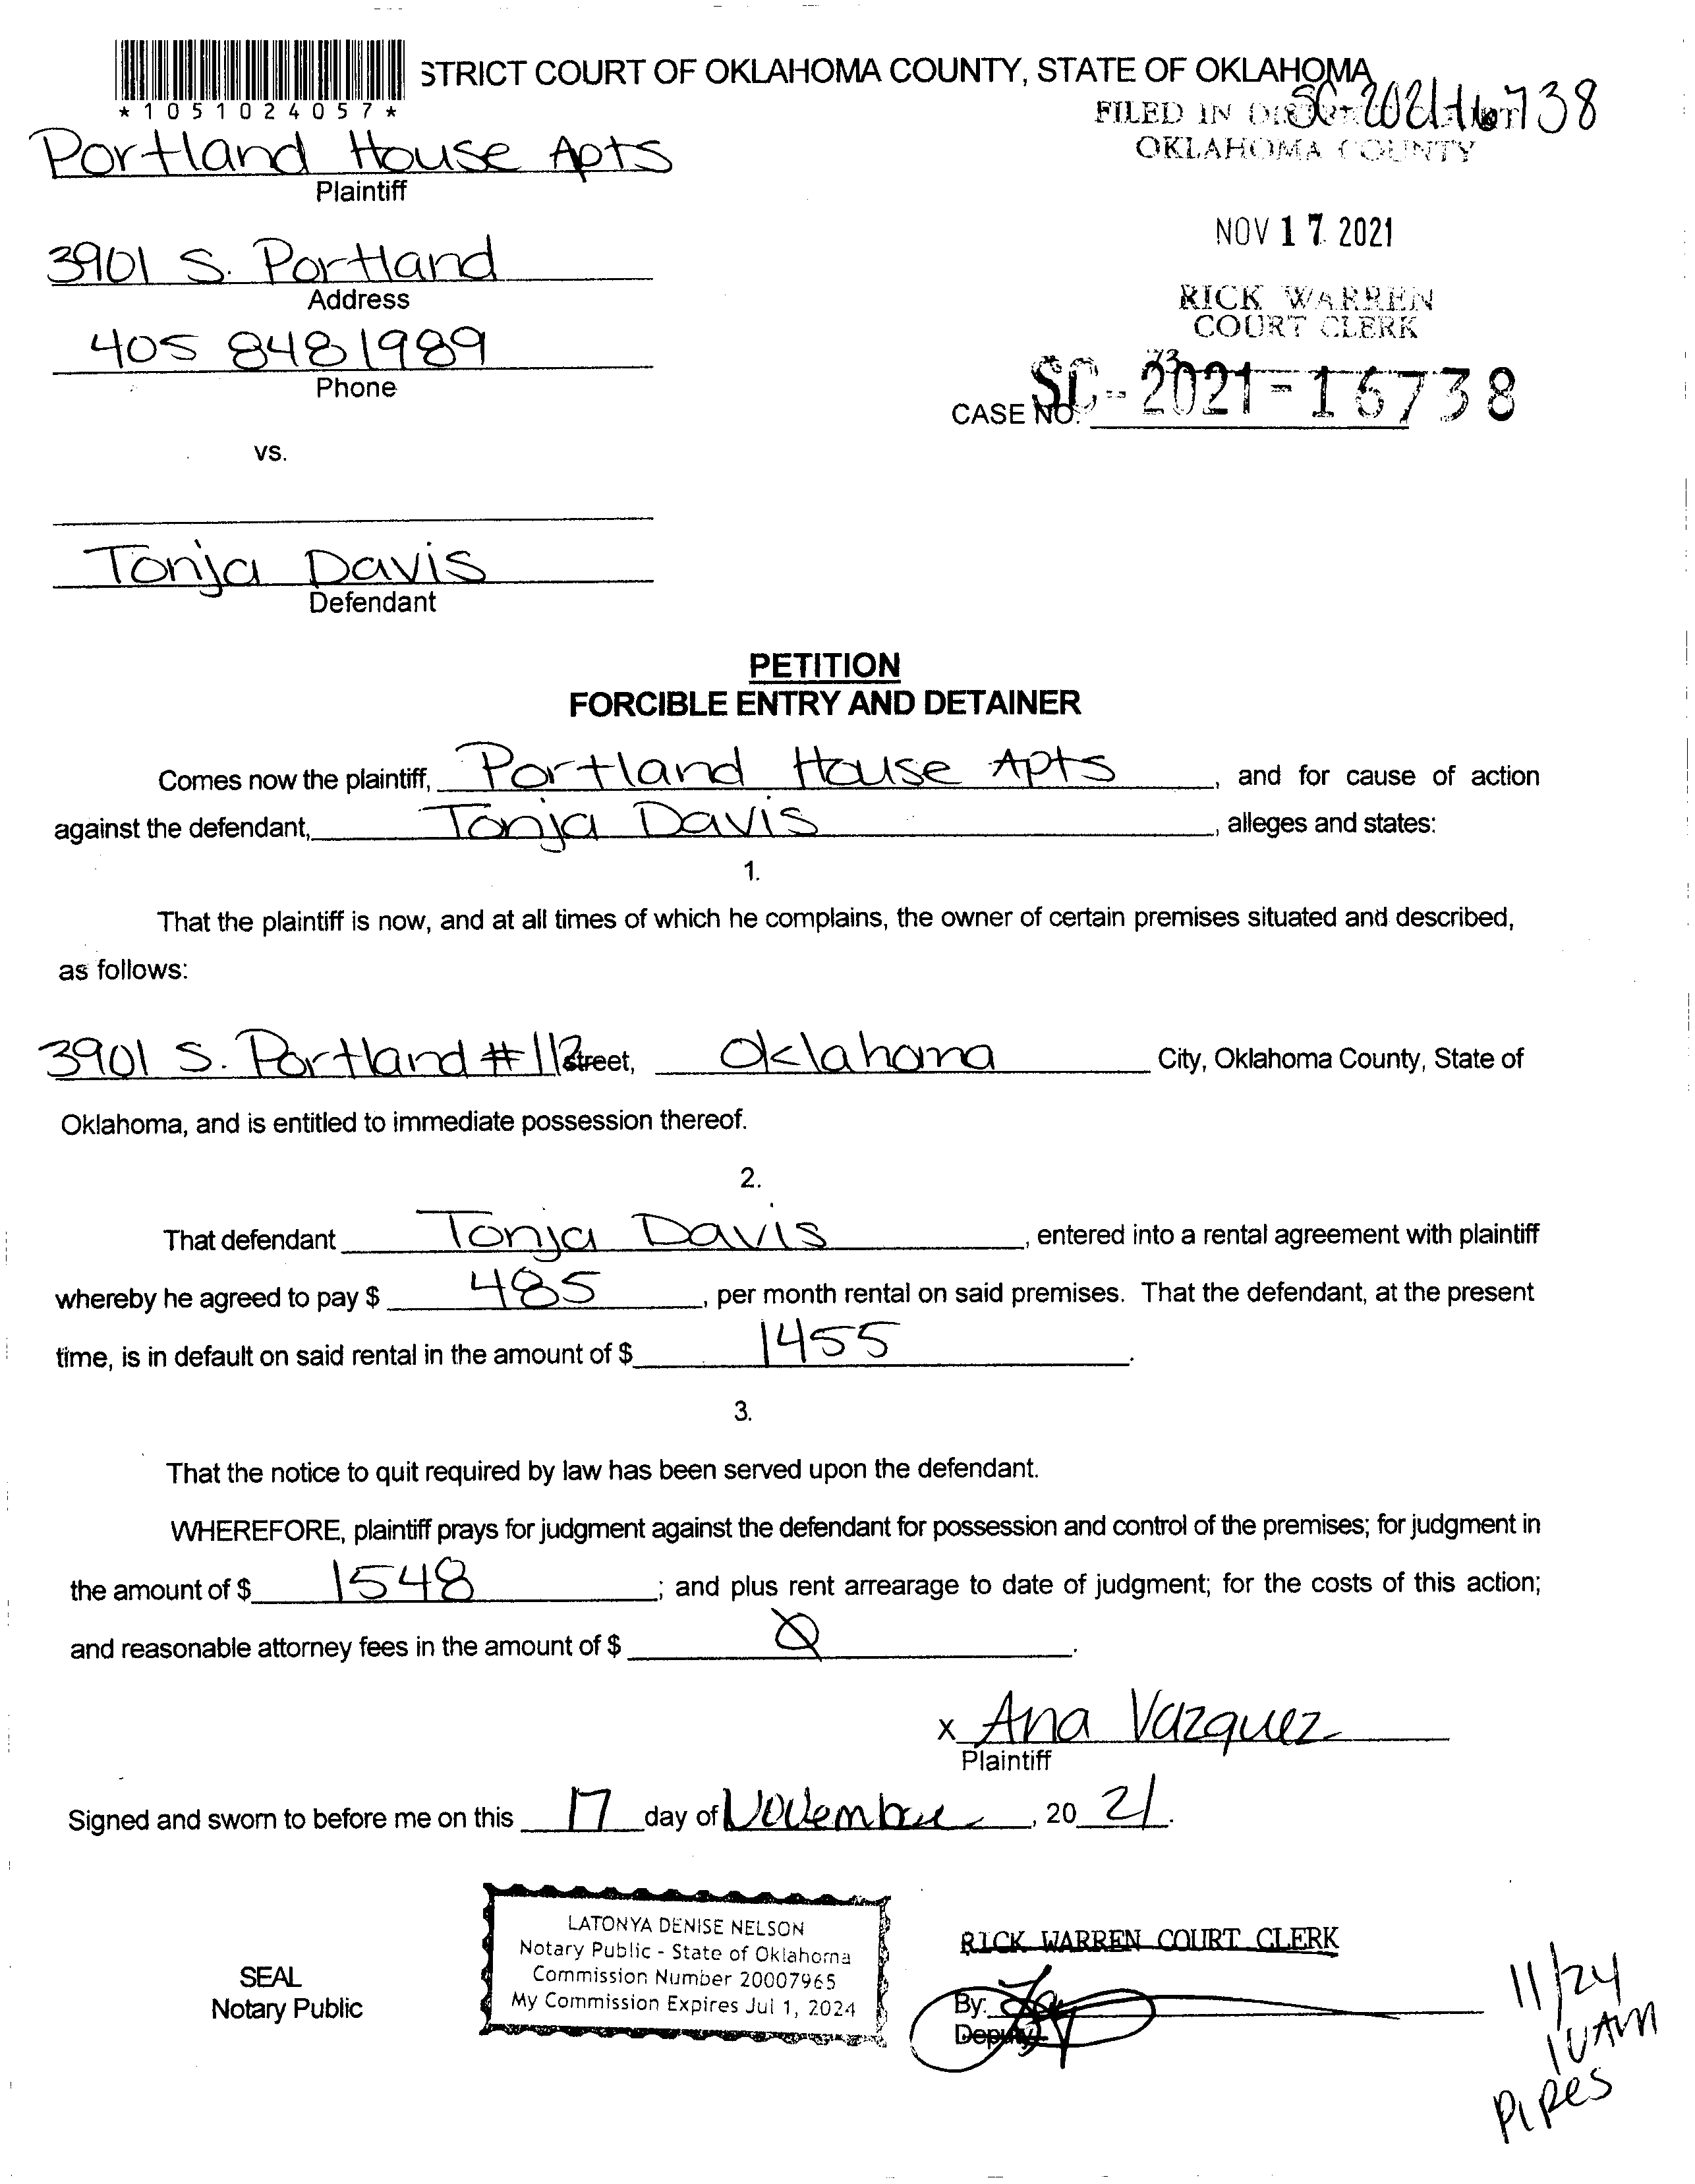 STRICT COURT OF OKLAHOMA COUNTY, STATE OF OKLAHOMA
*1051024057*
SC-2021-16738
FILED IN
OKLAHOMA COUNTY
Portland House Apts
Plaintiff
NOV 17 2021
3901 S. Portland
Address
RICK WARREN
COURT CLERK
405 848 1989
Phone
73
CASE NO. SC-2021-16738
vs.
Tonja Davis
Defendant
PETITION
FORCIBLE ENTRY AND DETAINER
Comes now the plaintiff, Portland House Apts, and for cause of action
against the defendant, Tonja Davis, alleges and states:
1.
That the plaintiff is now, and at all times of which he complains, the owner of certain premises situated and described,
as follows:
3901 S. Portland #112 street, Oklahoma City, Oklahoma County, State of
Oklahoma, and is entitled to immediate possession thereof.
2.
That defendant Tonja Davis, entered into a rental agreement with plaintiff
whereby he agreed to pay $ 485, per month rental on said premises. That the defendant, at the present
time, is in default on said rental in the amount of $ 1455.
3.
That the notice to quit required by law has been served upon the defendant.
WHEREFORE, plaintiff prays for judgment against the defendant for possession and control of the premises; for judgment in
the amount of $ 1548; and plus rent arrearage to date of judgment; for the costs of this action;
and reasonable attorney fees in the amount of $ Ø.
x Ana Vazquez
Plaintiff
Signed and sworn to before me on this 17 day of November, 20 21.
LATONYA DENISE NELSON
Notary Public - State of Oklahoma
Commission Number 20007965
My Commission Expires Jul 1, 2024
SEAL
Notary Public
RICK WARREN COURT CLERK
By:
Deputy
11/24
10AM
Pipes